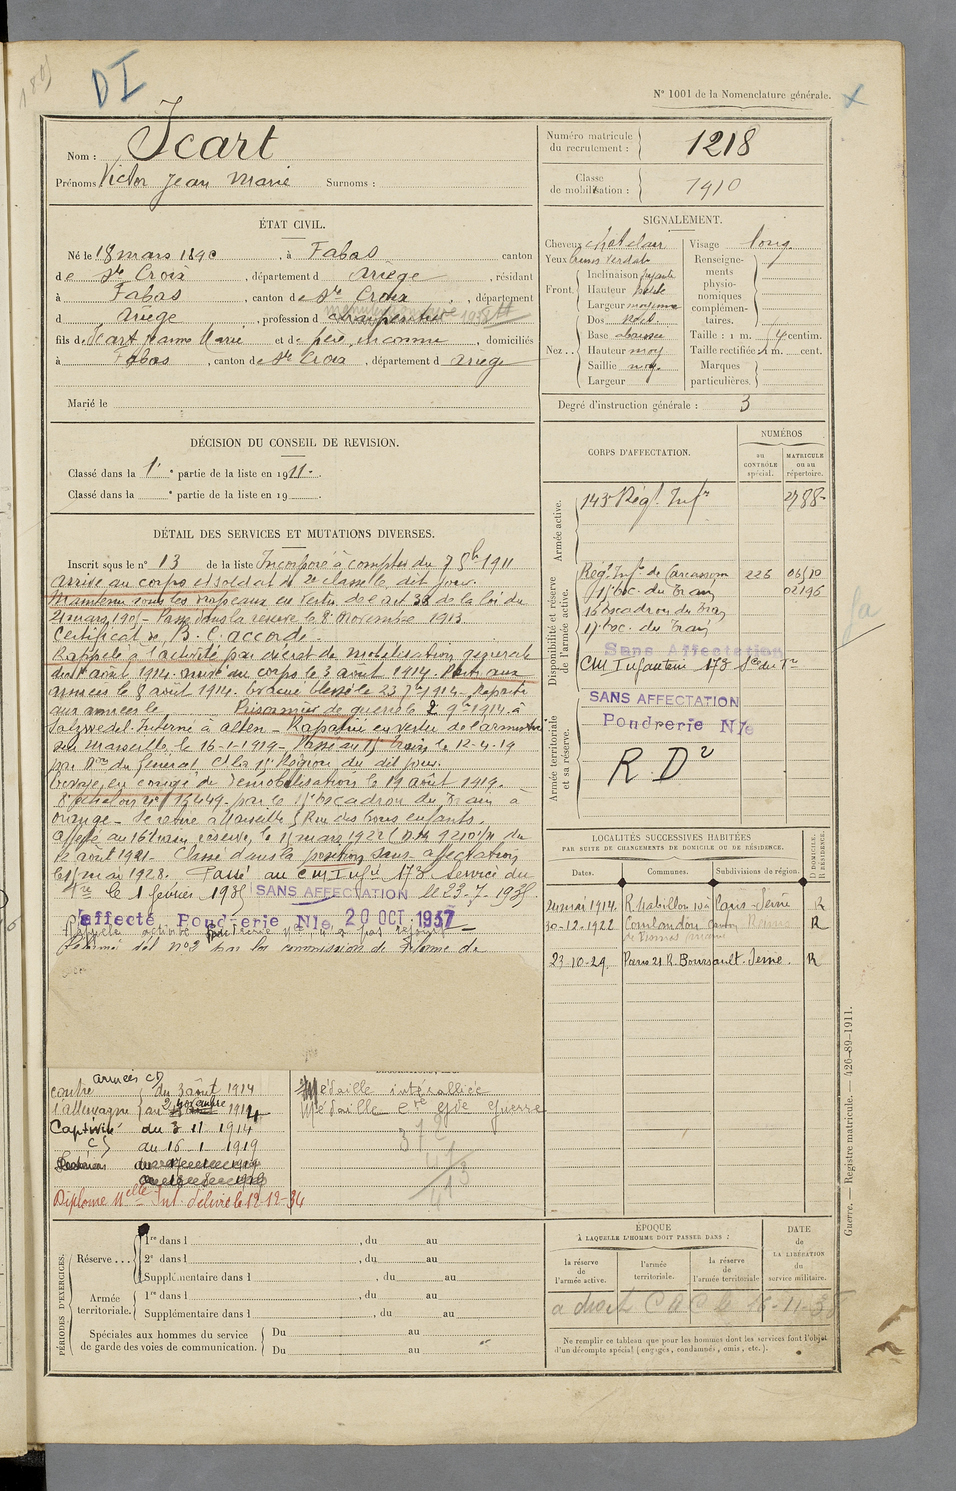 DI
N° 1001 de la Nomenclature générale.
Nom : Icart
Prénoms Victor Jean Marie Surnoms :
Numéro matricule du recrutement : 1218
Classe de mobilisation : 1910
ÉTAT CIVIL.
Né le 18 mars 1890, à Fabas canton
de Ste Croix, département d Ariège, résidant
à Fabas, canton de Ste Croix, département
d Ariège, profession d charpentier
fils de Icart Jeanne Marie et de père inconnu, domiciliés
à Fabas, canton de Ste Croix, département d Ariège
Marié le
SIGNALEMENT.
Cheveux châtains
Yeux
Front. Inclinaison fuyante
Hauteur petite
Largeur moyenne
Nez . . Dos rect.
Base abaissée
Hauteur moy
Saillie moy.
Largeur
Visage long
Renseignements physionomiques complémentaires.
Taille : 1 m. centim.
Taille rectifiée 1 m. cent.
Marques particulières.
Degré d'instruction générale : 3
DÉCISION DU CONSEIL DE REVISION.
Classé dans la 1e partie de la liste en 1911.
Classé dans la e partie de la liste en 19 .
CORPS D'AFFECTATION.
NUMÉROS
au CONTRÔLE spécial.
MATRICULE ou au répertoire.
Armée active.
143e Régt Infie 2788
Disponibilité et réserve de l'armée active.
Régt Infie de Carcassonne 226
15e Esc. du Train 02196
16 Escadron du Train
15e Esc. du Train
Sans Affectation
CM Infanterie 173
Armée territoriale et sa réserve.
SANS AFFECTATION
Poudrerie Nle
R.D2
DÉTAIL DES SERVICES ET MUTATIONS DIVERSES.
Inscrit sous le n° 13 de la liste Incorporé à compter du 1911
Arrivé au corps et soldat de 2e classe le dit jour.
Maintenu sous les drapeaux en vertu de l'art 33 de la loi du
21 mars 1905 - Passé dans la réserve le 8 Novembre 1913
Certificat de B. C. accordé.
Rappelé à l'activité par décret de mobilisation générale
du 1er août 1914. Arrivé au corps le 3 août 1914. Parti aux
armées le 8 août 1914. Evacué blessé le 23 1914. Reparti
aux armées le Prisonnier de guerre le 2 9bre 1914 à
Salzwedel. Interné à alten - Rapatrié en vertu de l'armistice
Marseille le 16-1-1919 - Passé au 15e Train le 12-4-19
par Don du Général Ct la 15e Région du dit jour.
Envoyé en congé de démobilisation le 19 août 1919.
8e échelon n° par le 15e Escadron du Train à
Orange - Se retire à Marseille Rue des Bons enfants.
Affecté au 16e train, réserve, le 1922
12 août 1921 - Classé dans la position sans affectation
le 1er mai 1928. Passé au CM Infie 173 Service du
le 1 février 1935 SANS AFFECTATION le 23-7-1935
affecté Poudrerie Nle 20 OCT. 1937
Réformé déf n° 2 par la commission de réforme de
LOCALITÉS SUCCESSIVES HABITÉES
PAR SUITE DE CHANGEMENTS DE DOMICILE OU DE RÉSIDENCE.
D DOMICILE. R RÉSIDENCE.
Dates. Communes. Subdivisions de région.
24 mai 1914. R. Mabillon Paris - Seine R
30-12-1922 Coulandon R
23-10-29. Paris 21 R. Boursault. Seine. R
contre l'allemagne
armées CD
du 3 août 1914
au 2 novembre 1914
Captivité CS
du 3 11 1914
au 16 1 1919
Diplôme Mlle Int. délivré le 12-12-34
Médaille interalliée
Médaille Cve Gde Guerre
PÉRIODES D'EXERCICES.
Réserve . . . 1re dans l , du au
2e dans l , du au
Supplémentaire dans l , du au
Armée territoriale. 1re dans l , du au
Supplémentaire dans l , du au
Spéciales aux hommes du service de garde des voies de communication. Du au
Du au
ÉPOQUE
À LAQUELLE L'HOMME DOIT PASSER DANS :
la réserve de l'armée active.
l'armée territoriale.
la réserve de l'armée territoriale
DATE de LA LIBÉRATION du service militaire.
a droit C d C le 16-11-35
Ne remplir ce tableau que pour les hommes dont les services font l'objet
d'un décompte spécial (engagés, condamnés, omis, etc.).
Guerre. — Registre matricule. — 426-89-1911.